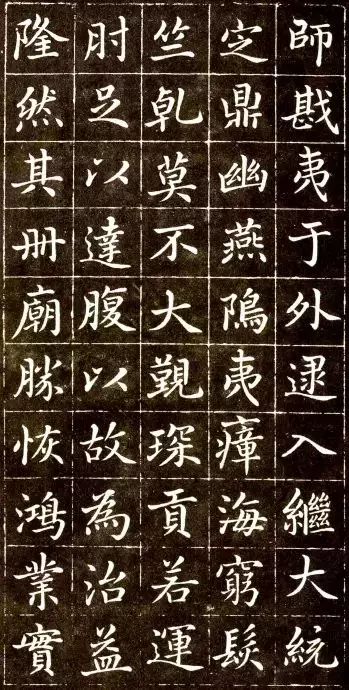 師戡夷于外逮入繼大統
定鼎幽燕隝夷瘴海窮髮
竺乹莫不大觐琛貢若運
肘足以達腹以故為治益
隆然其册廟勝恢鴻業實